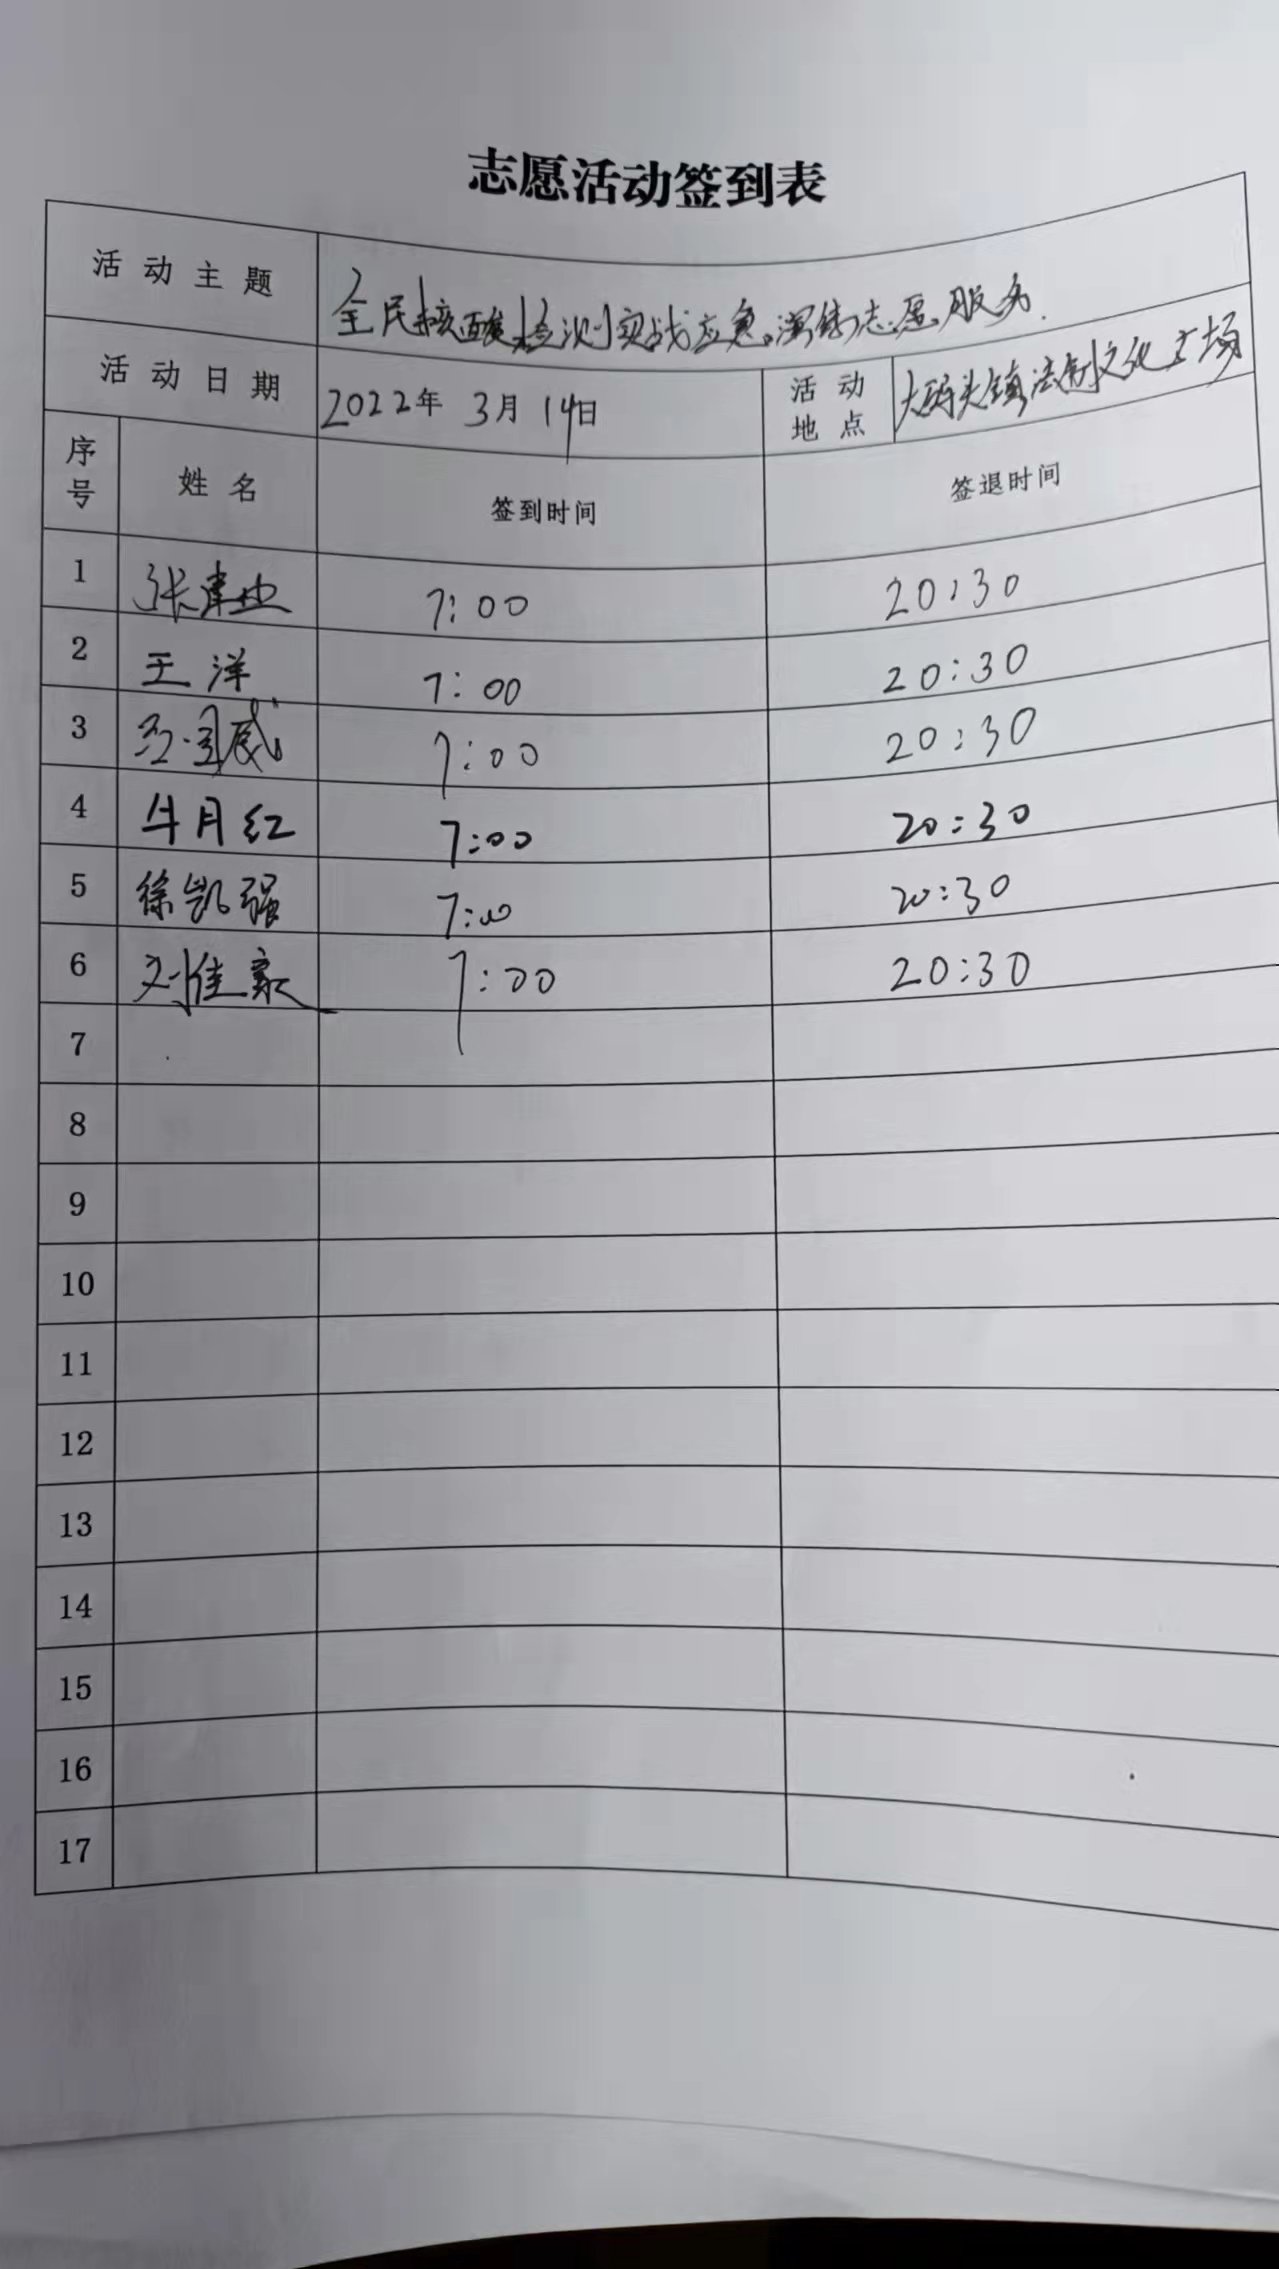 志愿活动签到表
活动主题 全民核酸检测实战应急演练志愿服务.
活动日期 2022年 3月 14日 活动地点 大码头镇法制文化广场
序号 姓名 签到时间 签退时间
1 张建业 7:00 20:30
2 王洋 7:00 20:30
3 7:00 20:30
4 牛月红 7:00 20:30
5 徐凯强 7:00 20:30
6 刘佳豪 7:00 20:30
7
8
9
10
11
12
13
14
15
16
17